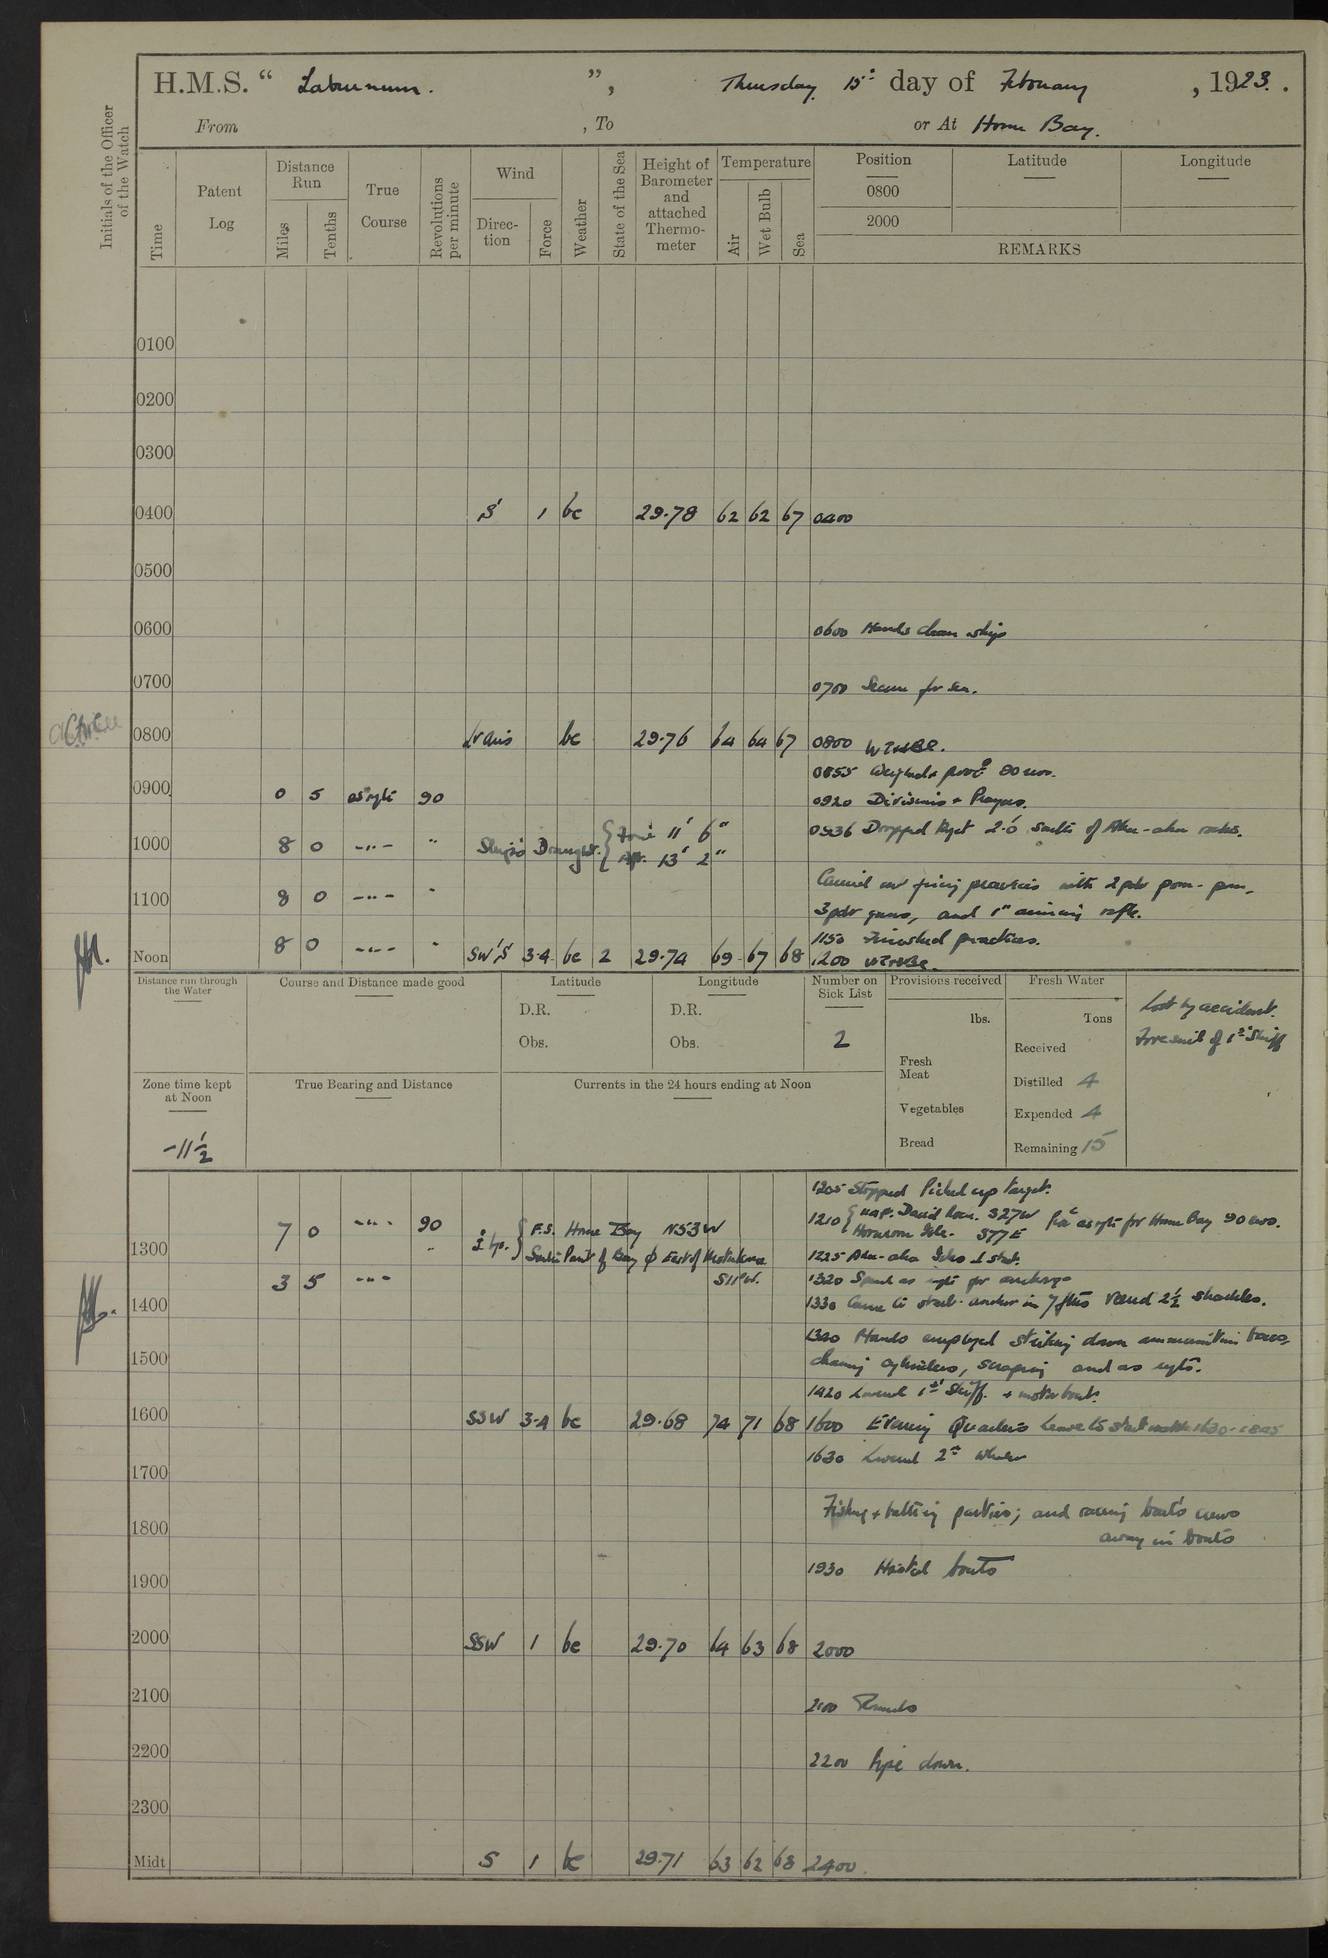 H.M.S. “ Laburnum. ”, Thursday 15th day of February , 1923.
From , To or At Home Bay.
Initials of the Officer of the Watch
Time
Patent Log
Distance Run
Miles
Tenths
True Course
Revolutions per minute
Wind
Direc-tion
Force
Weather
State of the Sea
Height of Barometer and attached Thermo-meter
Temperature
Air
Wet Bulb
Sea
Position Latitude Longitude
0800
2000
REMARKS
0100
0200
0300
0400 S' 1 bc 29.78 62 62 67 0400
0500
0600 0600 Hands clean ship
0700 0700 Secure for sea.
0800 Lr airs bc 29.76 64 64 67 0800
0855 Weighed & procd 90 revs.
0900 0 5 as rqte 90 0920 Divisions & Prayers.
0936 Dropped tgt 2'.0 south of Aku-aku rocks.
1000 8 0 -"- " Ship's Draught. { Fore 11' 6" Aft. 13' 2"
Carried out firing practices with 2pdr pom-pom,
1100 8 0 -"- " 3pdr guns, and 1" aiming rifle.
1150 Finished practices.
Noon 8 0 -"- " SW'S 3-4 bc 2 29.74 69 67 68 1200
Distance run through the Water
Course and Distance made good
Latitude
D.R.
Obs.
Longitude
D.R.
Obs.
Number on Sick List
2
Provisions received
lbs.
Fresh Meat
Vegetables
Bread
Fresh Water
Tons
Received
Distilled 4
Expended 4
Remaining 15
Lost by accident.
Foresail of 1st Skiff
Zone time kept at Noon
-11½
True Bearing and Distance
Currents in the 24 hours ending at Noon
1205 Stopped Picked up target.
7 0 -"- 90 F.S. Home Bay N53W
1210 David Rocks. S27W S77E as rqte for Home Bay 90 revs.
1300 South Point of Bay φ East of S11°W.
1225 Aku-aku
3 5 -"- 1320 Speed as rqte for anchorage
1400 1330 Came to starb. anchor in 7 fths Veered 2½ shackles.
1340 Hands employed striking down ammunition boxes,
1500 cleaning cylinders, scraping and as rqte.
1420 Lowered 1st Skiff. & motor boat.
1600 SSW 3-4 bc 29.68 74 71 68 1600 Evening Quarters Leave to starb watch 1630-1845
1630 Lowered 2nd Whaler
1700
Fishing & bathing parties; and racing boats crews
1800 away in boats
1930 Hoisted boats
1900
2000 SSW 1 bc 29.70 64 63 68 2000
2100 2100 Rounds
2200 2200 Pipe down.
2300
Midt S 1 bc 29.71 63 62 68 2400